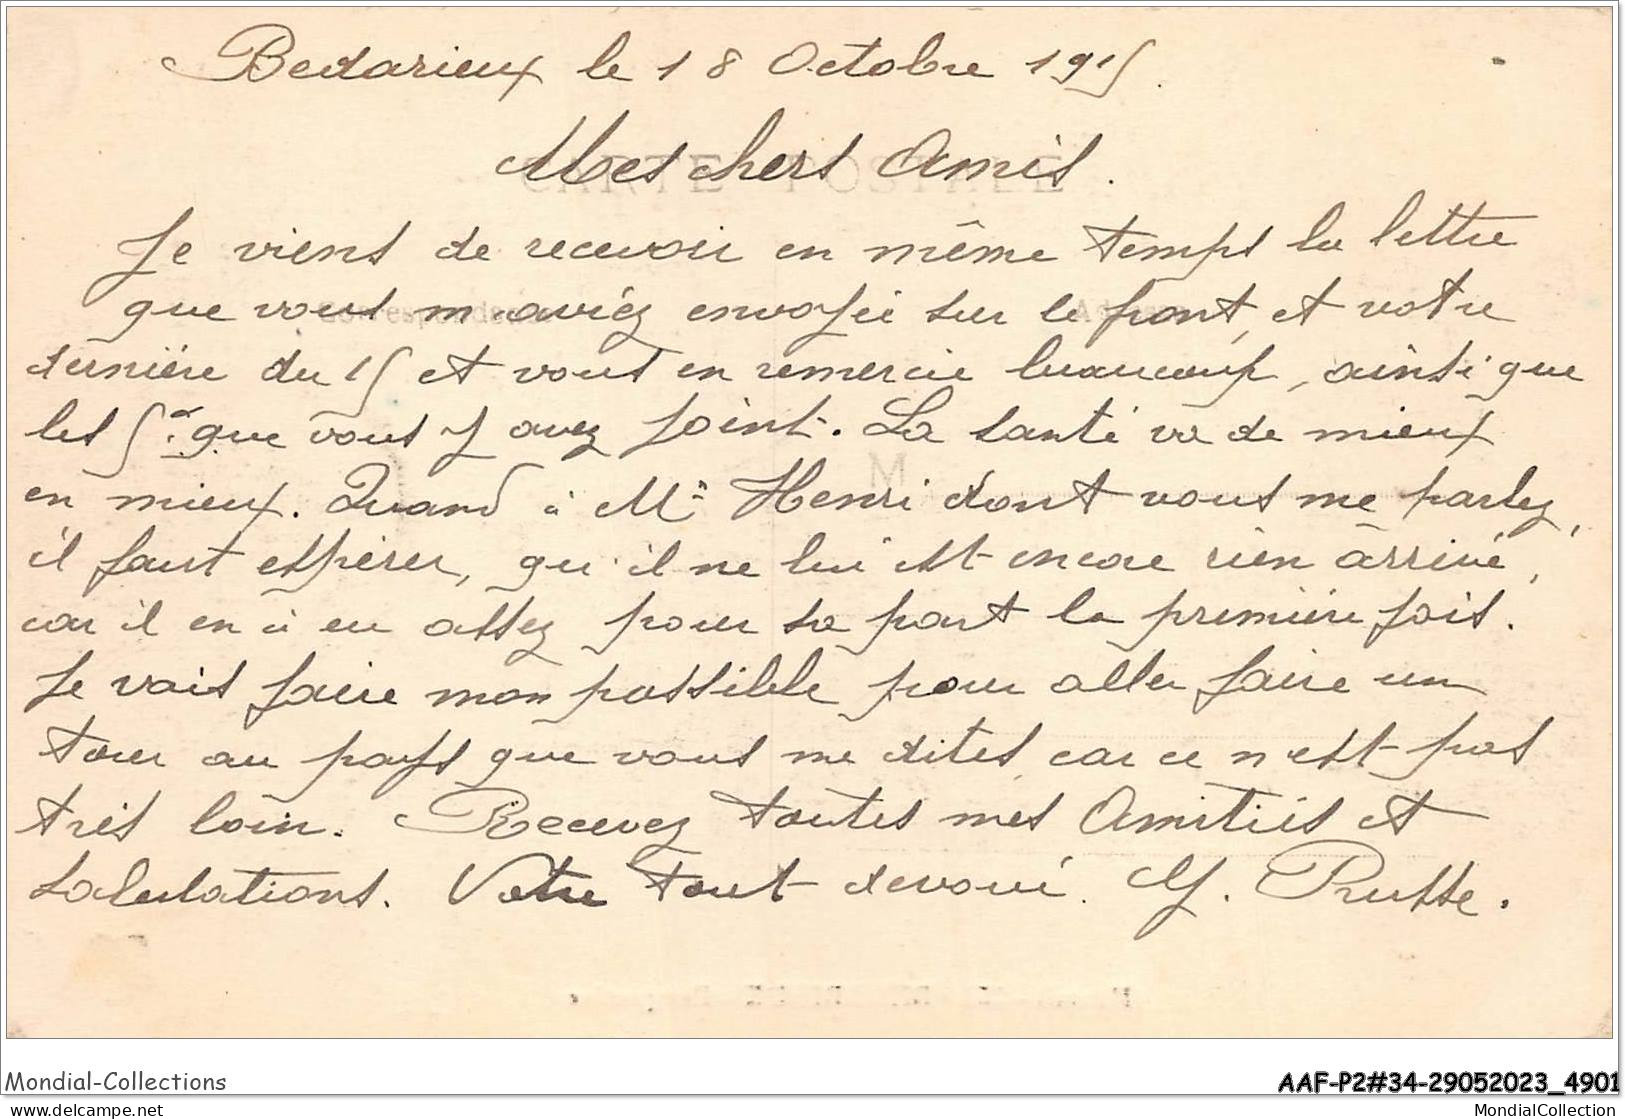 Bedarieux le 18 Octobre 1915.
Mes chers Amis.
CARTE POSTALE
Je viens de recevoir en même temps la lettre
que vous m aviéz envoyée sur le front, et votre
Correspondance
dernière du 15 et vous en remercie beaucoup, ainsi que
les 5 que vous y avez joint. La santé va de mieux
M
en mieux. Quand à Mr Henri dont vous me parlez,
il faut espérer, qu'il ne lui est encore rien arrivé,
car il en à eu assez pour sa part la première fois.
Je vais faire mon possible pour aller faire un
tour au pays que vous me dites, car ce n est pas
très loin. Recevez toutes mes Amitiés et
Salulations. Votre tout dévoué. Prusse.
Mondial-Collections
AAF-P2#34-29052023_4901
https://www.delcampe.net
MondialCollection